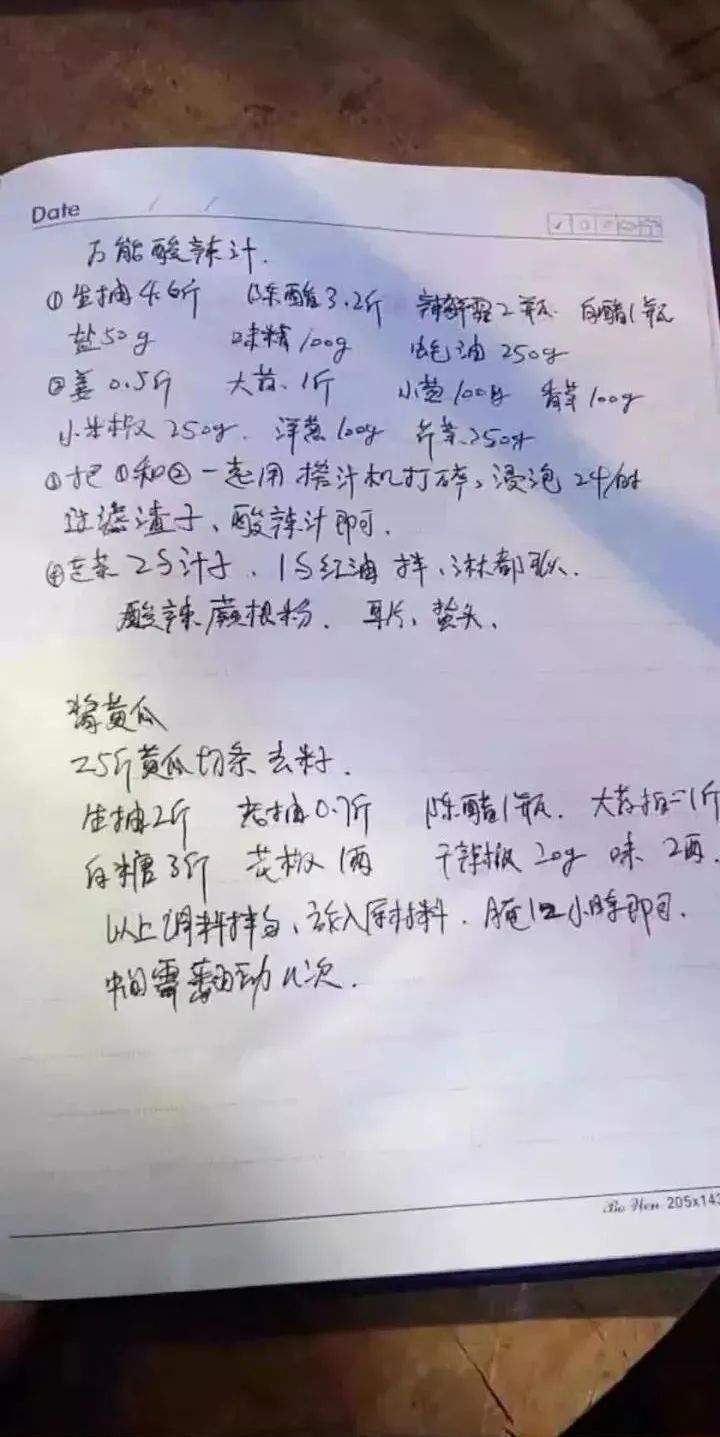 Date / /
万能酸辣汁.
①生抽4.6斤 陈醋3.2斤 辣鲜露2瓶 白醋1瓶
盐50g 味精100g 蚝油250g
②姜0.5斤 大蒜1斤 小葱100g 香菜100g
小米椒250g. 洋葱100g 芹菜250g
③把①和②一起用榨汁机打碎,浸泡24小时
过滤渣子、酸辣汁即可.
④走菜2S汁子、1S红油拌、淋都可以.
酸辣蕨根粉. 耳片、蜇头、
酱黄瓜
25斤黄瓜切条去籽.
生抽2斤 老抽0.7斤 陈醋1瓶. 大蒜 1斤
白糖3斤 花椒1两 干辣椒20g 味 2两.
以上调料拌匀、放入原材料. 腌12小时即可.
中间需翻动几次.
Bo Wen 205x143